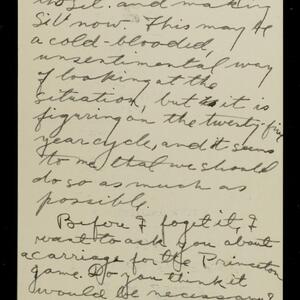 and making
now. This may be
a cold-blooded,
unsentimental way
of looking at the
situation, but it is
figuring on the twenty-five
year cycle, and it seems
to me that we should
do so as much as
possible.
Before I foget it, I
want to ask you about
a carriage for the Princeton
game. Do you think it
would be necessary?